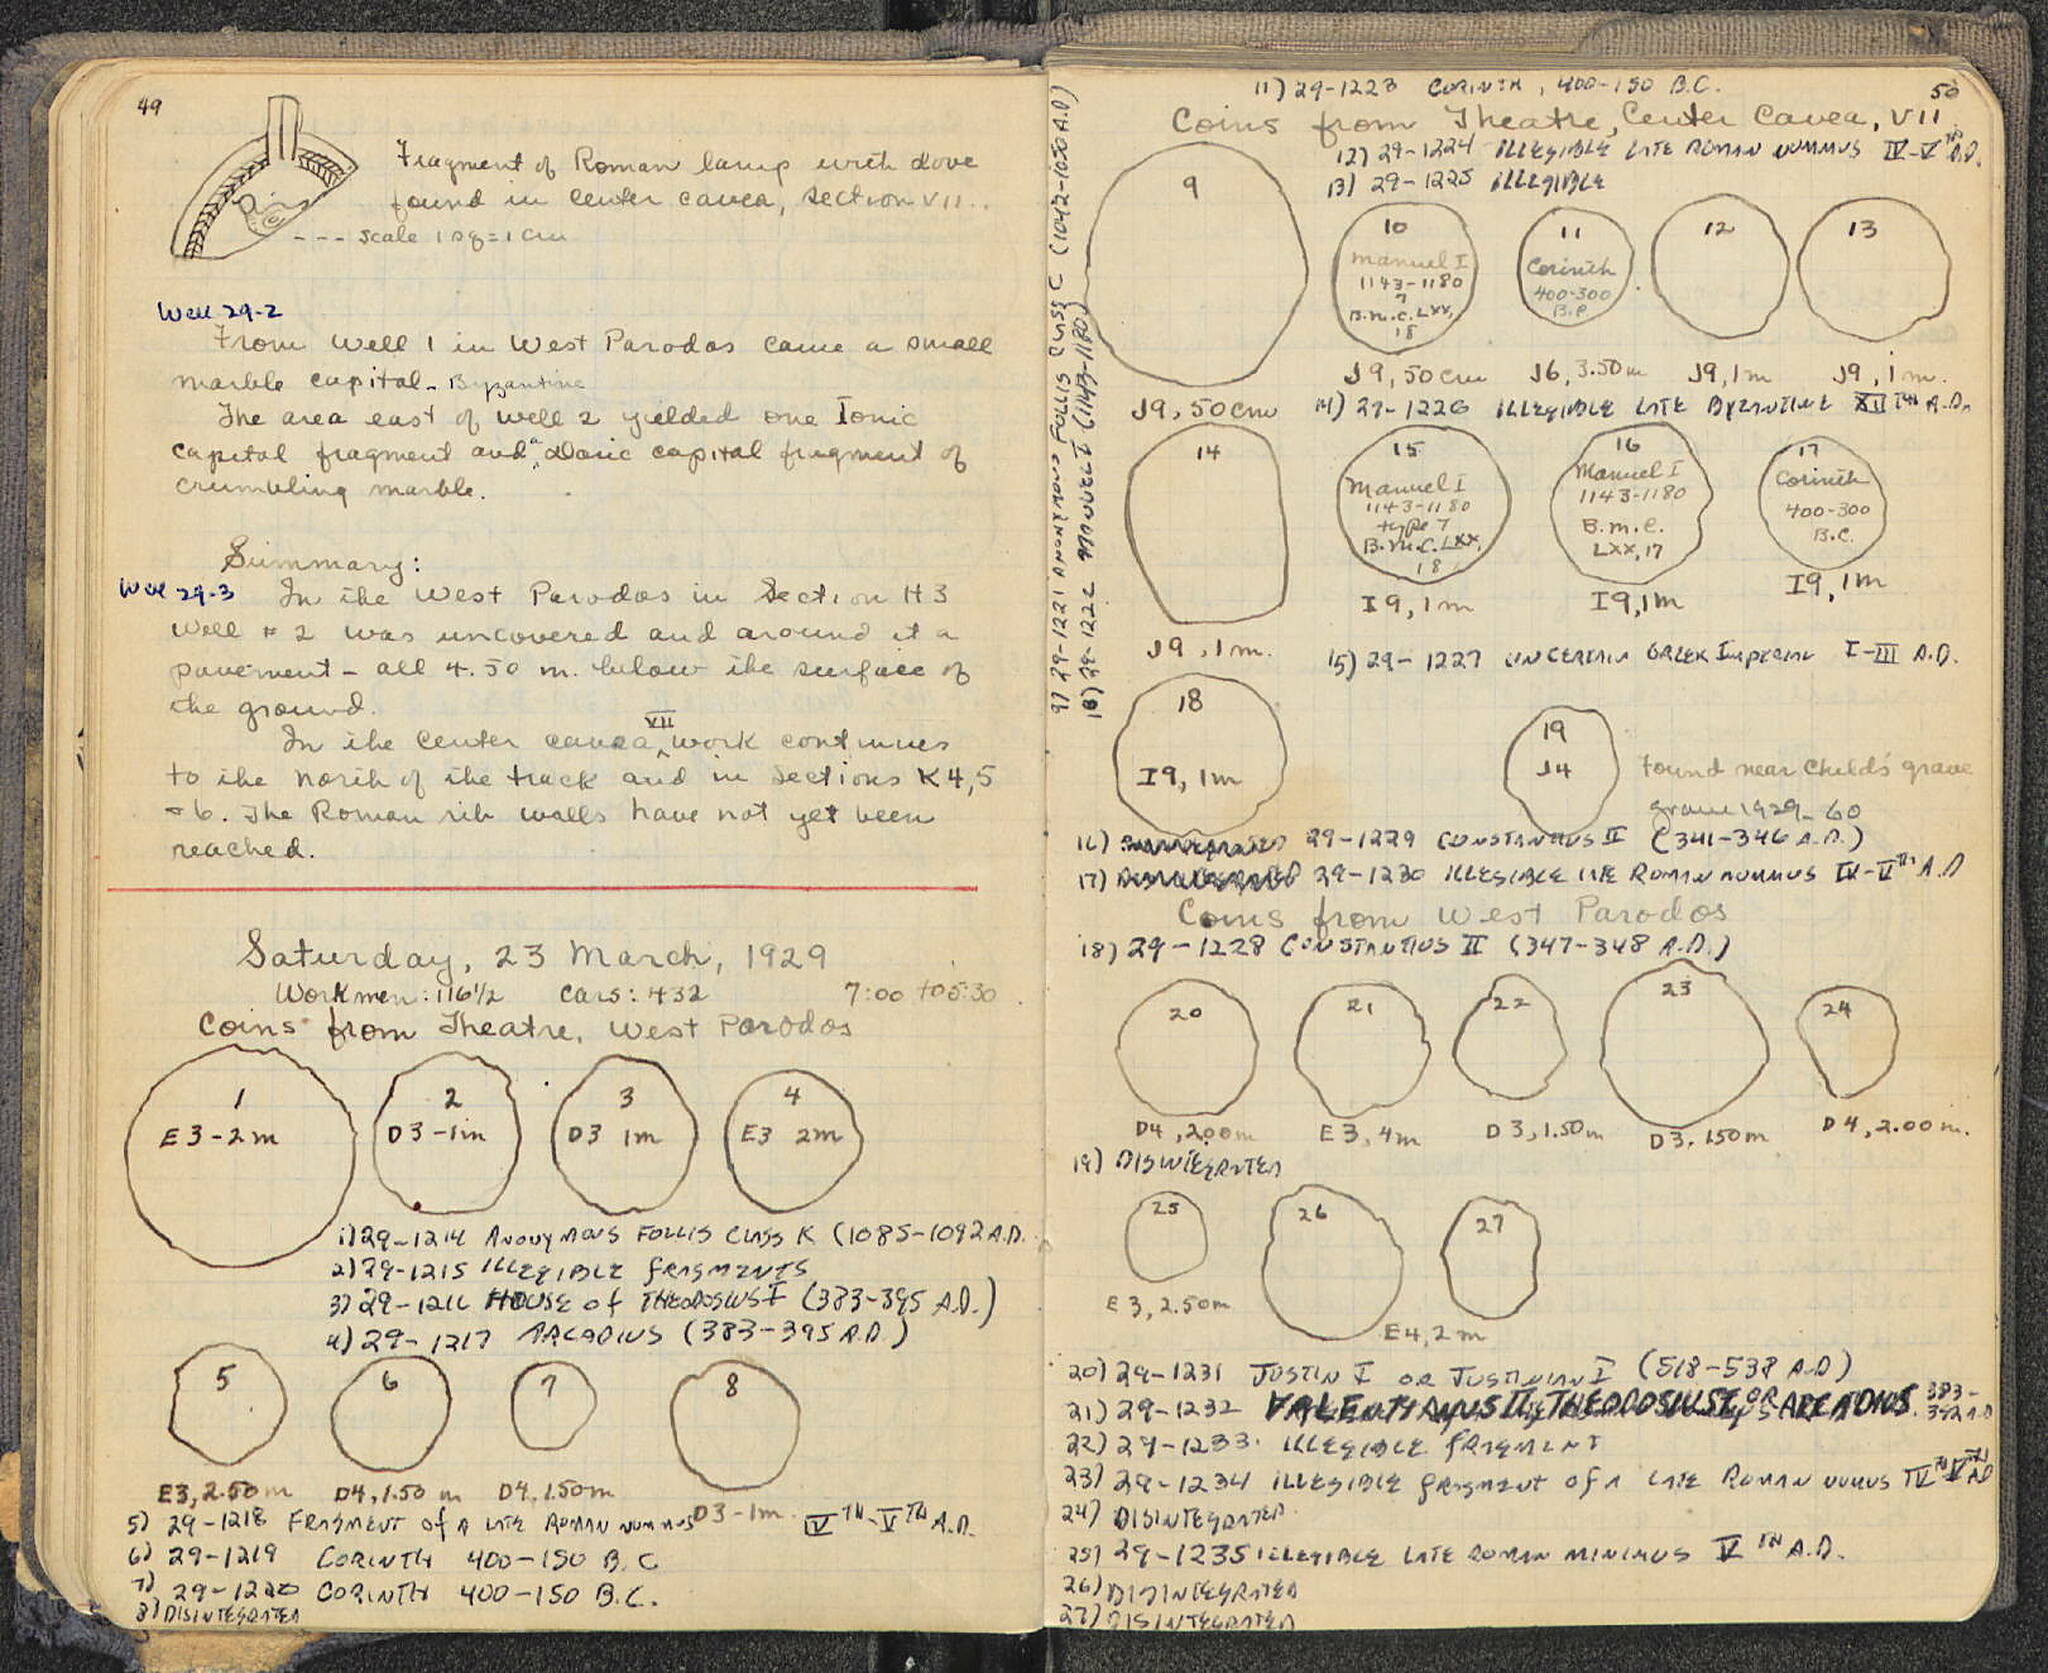 49
Fragment of Roman lamp with dove
found in center cavea, section VII..
--- scale 1 sq = 1 cm
Well 29-2
From Well 1 in West Parodos came a small
marble capital - Byzantine
The area east of well 2 yielded one Ionic
capital fragment and a Doric capital fragment of
crumbling marble.
Summary:
Well 29-3
In the West Parodos in Section H3
Well #2 was uncovered and around it a
pavement - all 4.50 m. below the surface of
the ground.
In the center cavea VII work continues
to the north of the track and in sections K4,5
+ 6. The Roman rib walls have not yet been
reached.
Saturday, 23 March, 1929
Workmen: 116 1/2 Cars: 432 7:00 to 5:30
Coins from Theatre, West Parodos
1
E3-2m
2
D3-1m
3
D3 1m
4
E3 2m
1) 29-1214 ANONYMOUS FOLLIS CLASS K (1085-1092 A.D.
2) 29-1215 ILLEGIBLE FRAGMENTS
3) 29-1216 HOUSE of THEODOSIUS I (383-395 A.D.)
4) 29-1217 ARCADIUS (383-395 A.D.)
5
6
7
8
E3, 2.50 m
D4, 1.50 m
D4, 1.50m
D3-1m.
5) 29-1218 FRAGMENT of A LATE ROMAN NUMMUS IV TH-V TH A.D.
6) 29-1219 CORINTH 400-150 B.C
7) 29-1220 CORINTH 400-150 B.C.
8) DISINTEGRATED
50
11) 29-1223 CORINTH, 400-150 B.C.
Coins from Theatre, Center Cavea, VII
12) 29-1224 ILLEGIBLE LATE ROMAN NUMMUS IV-V TH A.D.
13) 29-1225 ILLEGIBLE
9) 29-1221 ANONYMOUS FOLLIS CLASS C (1042-1050 A.D)
10) 29-1222 MANUEL I (1143-1180)
9
10
Manuel I
1143-1180
7
B.M.C. LXX,
18
11
Corinth
400-300
B.C.
12
13
J9, 50cm
J9, 50cm
J6, 3.50m
J9, 1m
J9, 1m.
14) 29-1226 ILLEGIBLE LATE BYZANTINE XII TH A.D.
14
15
Manuel I
1143-1180
type 7
B.M.C. LXX,
18
16
Manuel I
1143-1180
B.M.C.
LXX, 17
17
Corinth
400-300
B.C.
J9, 1m.
I9, 1m
I9, 1m
I9, 1m
15) 29-1227 UNCERTAIN GREEK IMPERIAL I-III A.D.
18
I9, 1m
19
J4
Found near Child's grave
grave 1929-60
16) 29-1229 CONSTANTIUS II (341-346 A.D.)
17) 29-1230 ILLEGIBLE LATE ROMAN NUMMUS IV-V TH A.D
Coins from West Parodos
18) 29-1228 CONSTANTIUS II (347-348 A.D.)
20
21
22
23
24
D4, 2.00m
E3, 4m
D3, 1.50m
D3, 1.50m
D4, 2.00 m.
19) DISINTEGRATED
25
26
27
E3, 2.50m
E4, 2m
20) 29-1231 JUSTIN I OR JUSTINIAN I (518-538 A.D)
21) 29-1232 VALENTIANUS II, THEODOSIUS I OR ARCADIUS 383-392 A.D
22) 29-1233. ILLEGIBLE FRAGMENT
23) 29-1234 ILLEGIBLE FRAGMENT of A LATE ROMAN NUMUS IV TH V TH AD
24) DISINTEGRATED
25) 29-1235 ILLEGIBLE LATE ROMAN MINIMUS V TH A.D.
26) DISINTEGRATED
27) DISINTEGRATED